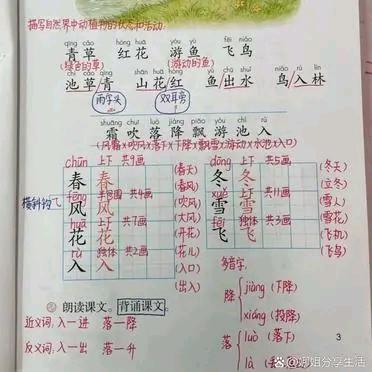 描写自然界中动植物的状态和活动
qīng cǎo hóng huā yóu yú fēi niǎo
青草 红花 游鱼 飞鸟
(绿色的草) (游动的鱼)
chí cǎo qīng shān huā hóng yú chū shuǐ niǎo rù lín
池草/青 山花/红 鱼/出水 鸟/入林
雨字头 双耳旁
shuāng chuī luò jiàng piāo yóu chí rù
霜 吹 落 降 飘 游 池 入
(风霜)(吹风)(落下)(下降)(飘雪)(游动)(水池)(入口)
chūn 上下 共9画 (春天)
dōng 上下 共5画 (冬天)
春 春 (春风)
冬 冬 (立冬)
横斜钩
fēng 半包围 共4画 (吹风)
xuě 上下 共11画 (雪人)
风 风 (大风)
雪 雪 (雪花)
huā 上下 共7画 (开花)
fēi 独体 共3画 (飞机)
花 花 (花儿)
飞 飞 (飞鸟)
rù 独体 共2画 (入口)
入 入 (出入)
多音字
降 jiàng (下降)
xiáng (投降)
落 luò (落下)
là
朗读课文。背诵课文。
近义词:入一进 落一降
反义词:入一出 落一升
3